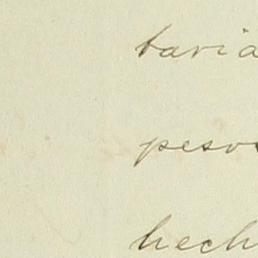 taría
peso
hech